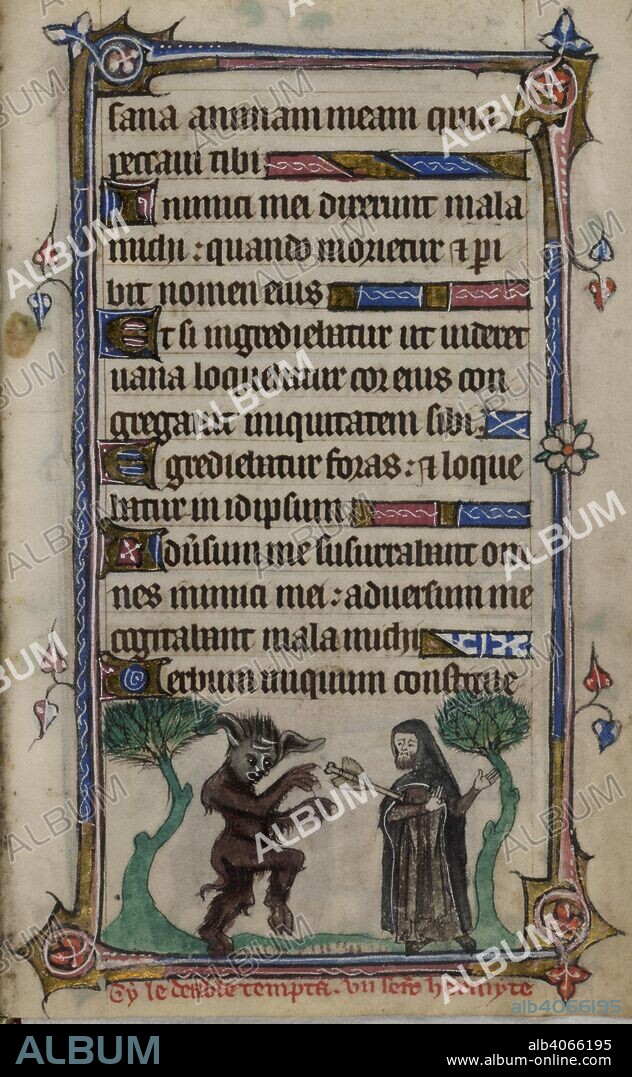 sana animam meam quia
peccaui tibi
Inimici mei dixerunt mala
michi : quando morietur ⁊ pi
bit nomen eius
Et si ingrediebatur ut uideret
uana loquebatur cor eius con
gregauit iniquitatem sibi.
Egrediebatur foras : ⁊ loque
batur in idipsum
Adũsum me susurrabant om
nes inimici mei : aduersum me
cogitabant mala michi
Verbum iniquum constitue
Cy le deable tempta . un seint hermyte
alb4066195
ALBUM
alb4066195
www.album-online.com